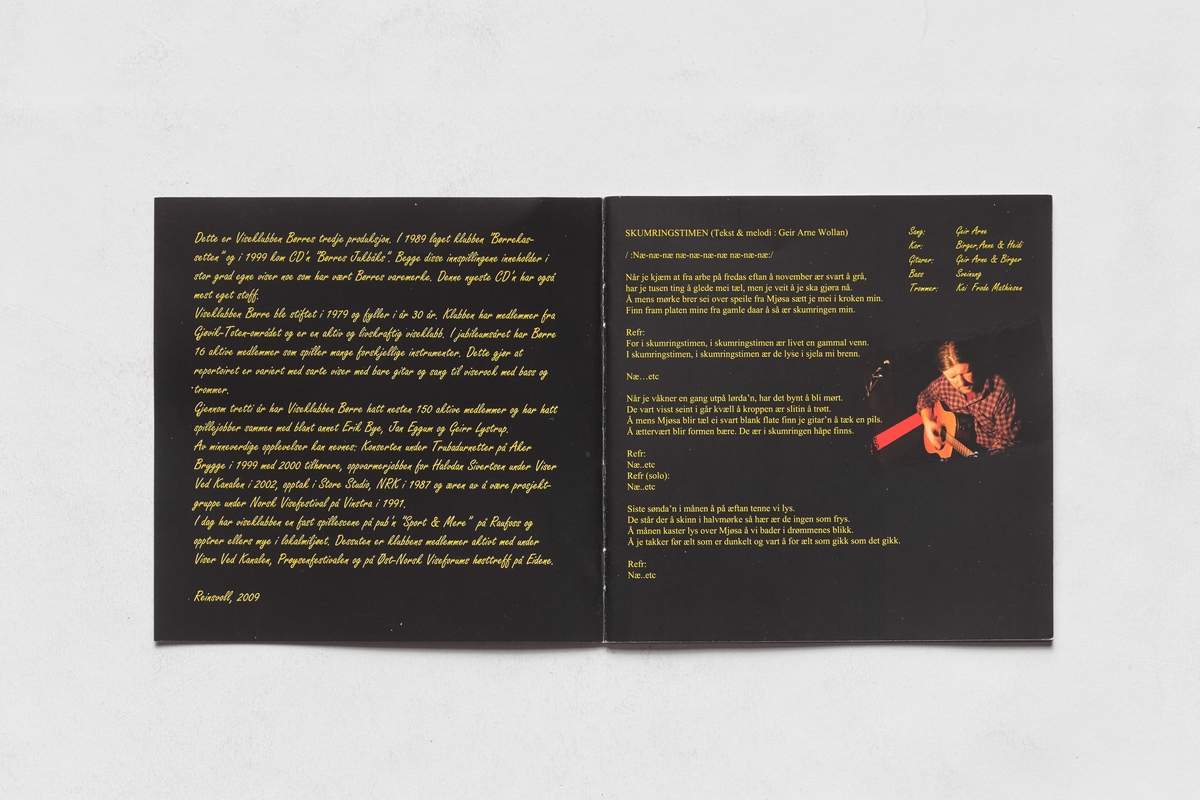 Dette er Viseklubben Børres tredje produksjon. I 1989 laget klubben "Børrekas-
setten" og i 1999 kom CD'n "Børres Jukbåks". Begge disse innspillingene inneholder i
stor grad egne viser noe som har vært Børres varemerke. Denne nyeste CD'n har også
mest eget stoff.
Viseklubben Børre ble stiftet i 1979 og fyller i år 30 år. Klubben har medlemmer fra
Gjøvik-Toten-området og er en aktiv og livskraftig viseklubb. I jubileumsåret har Børre
16 aktive medlemmer som spiller mange forskjellige instrumenter. Dette gjør at
reportoiret er variert med sarte viser med bare gitar og sang til viserock med bass og
trommer.
Gjennom tretti år har Viseklubben Børre hatt nesten 150 aktive medlemmer og har hatt
spillejobber sammen med blant annet Erik Bye, Jon Eggum og Geirr Lystrup.
Av minneverdige opplevelser kan nevnes: Konserten under Trubadurnetter på Aker
Brygge i 1999 med 2000 tilhørere, oppvarmerjobben for Halvdan Sivertsen under Viser
Ved Kanalen i 2002, opptak i Store Studio, NRK i 1987 og æren av å være prosjekt-
gruppe under Norsk Visefestival på Vinstra i 1991.
I dag har viseklubben en fast spillescene på pub'n "Sport & Mere" på Raufoss og
opptrer ellers mye i lokalmiljøet. Dessuten er klubbens medlemmer aktivt med under
Viser Ved Kanalen, Prøysenfestivalen og på Øst-Norsk Viseforums høsttreff på Eidene.
Reinsvoll, 2009
SKUMRINGSTIMEN (Tekst & melodi : Geir Arne Wollan)
/ :Næ-næ-næ næ-næ-næ-næ næ-næ-næ:/
Når je kjæm at fra arbe på fredas eftan å november ær svart å grå,
har je tusen ting å glede mei tæl, men je veit å je ska gjøra nå.
Å mens mørke brer sei over speile fra Mjøsa sætt je mei i kroken min.
Finn fram platen mine fra gamle daar å så ær skumringen min.
Refr:
For i skumringstimen, i skumringstimen ær livet en gammal venn.
I skumringstimen, i skumringstimen ær de lyse i sjela mi brenn.
Næ…etc
Når je våkner en gang utpå lørda'n, har det bynt å bli mørt.
De vart visst seint i går kvæll å kroppen ær slitin å trøtt.
Å mens Mjøsa blir tæl ei svart blank flate finn je gitar'n å tæk en pils.
Å ættervært blir formen bære. De ær i skumringen håpe finns.
Refr:
Næ..etc
Refr (solo):
Næ..etc
Siste sønda'n i månen å på æftan tenne vi lys.
De står der å skinn i halvmørke så hær ær de ingen som frys.
Å månen kaster lys over Mjøsa å vi bader i drømmenes blikk.
Å je takker før ælt som er dunkelt og vart å for ælt som gikk som det gikk.
Refr:
Næ..etc
Sang: Geir Arne
Kor: Birger,Anne & Heidi
Gitarer: Geir Arne & Birger
Bass Sveinung
Trommer: Kai Frode Mathiesen